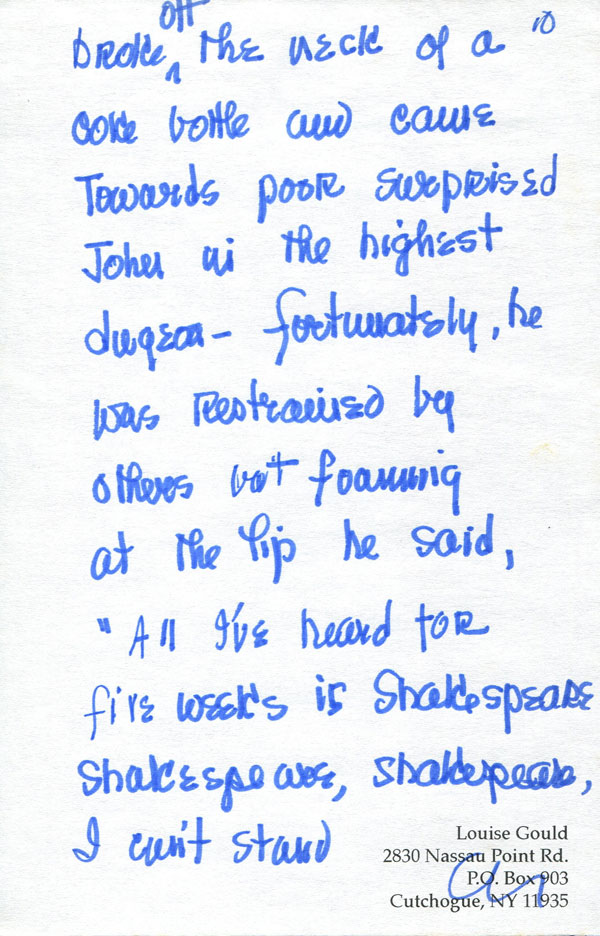 off
broke the neck of a 10
coke bottle and came
Towards poor surprised
John in the highest
dugeon – fortunately, he
was restrained by
others but foaming
at the lip he said,
"All I've heard for
five weeks is Shakespeare
Shakespeare, Shakespeare,
I can't stand
Louise Gould
2830 Nassau Point Rd.
P.O. Box 903
Cutchogue, NY 11935